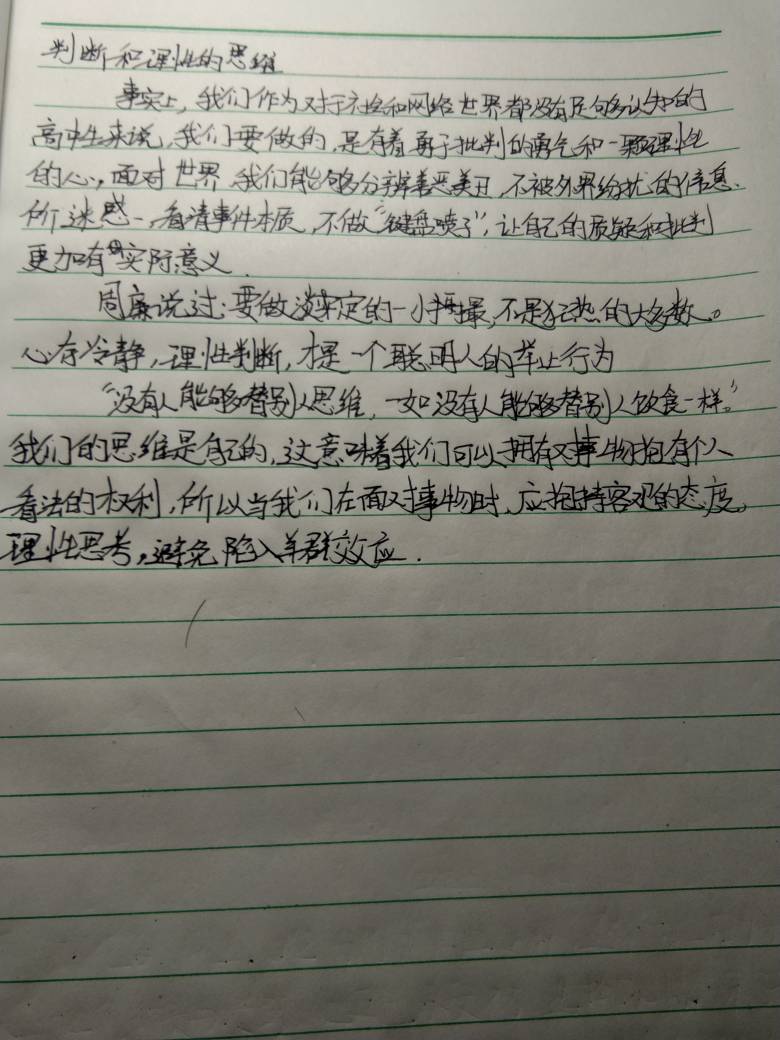 判断和理性的思维
事实上，我们作为对于社会和网络世界都没有足够认知的
高中生来说，我们要做的，是有着勇于批判的勇气和一颗理性
的心，面对世界，我们能够分辨善恶美丑，不被外界纷扰的信息
所迷惑，看清事件本质，不做“键盘喷子”，让自己的质疑和批判
更加有实际意义.
周廉说过：要做淡定的一小撮，不是狂热的大多数。
心存冷静，理性判断，才是一个聪明人的举止行为
“没有人能够替别人思维，一如没有人能够替别人饮食一样。”
我们的思维是自己的，这意味着我们可以拥有对事物抱有个人
看法的权利，所以当我们在面对事物时，应抱持客观的态度，
理性思考，避免陷入羊群效应.